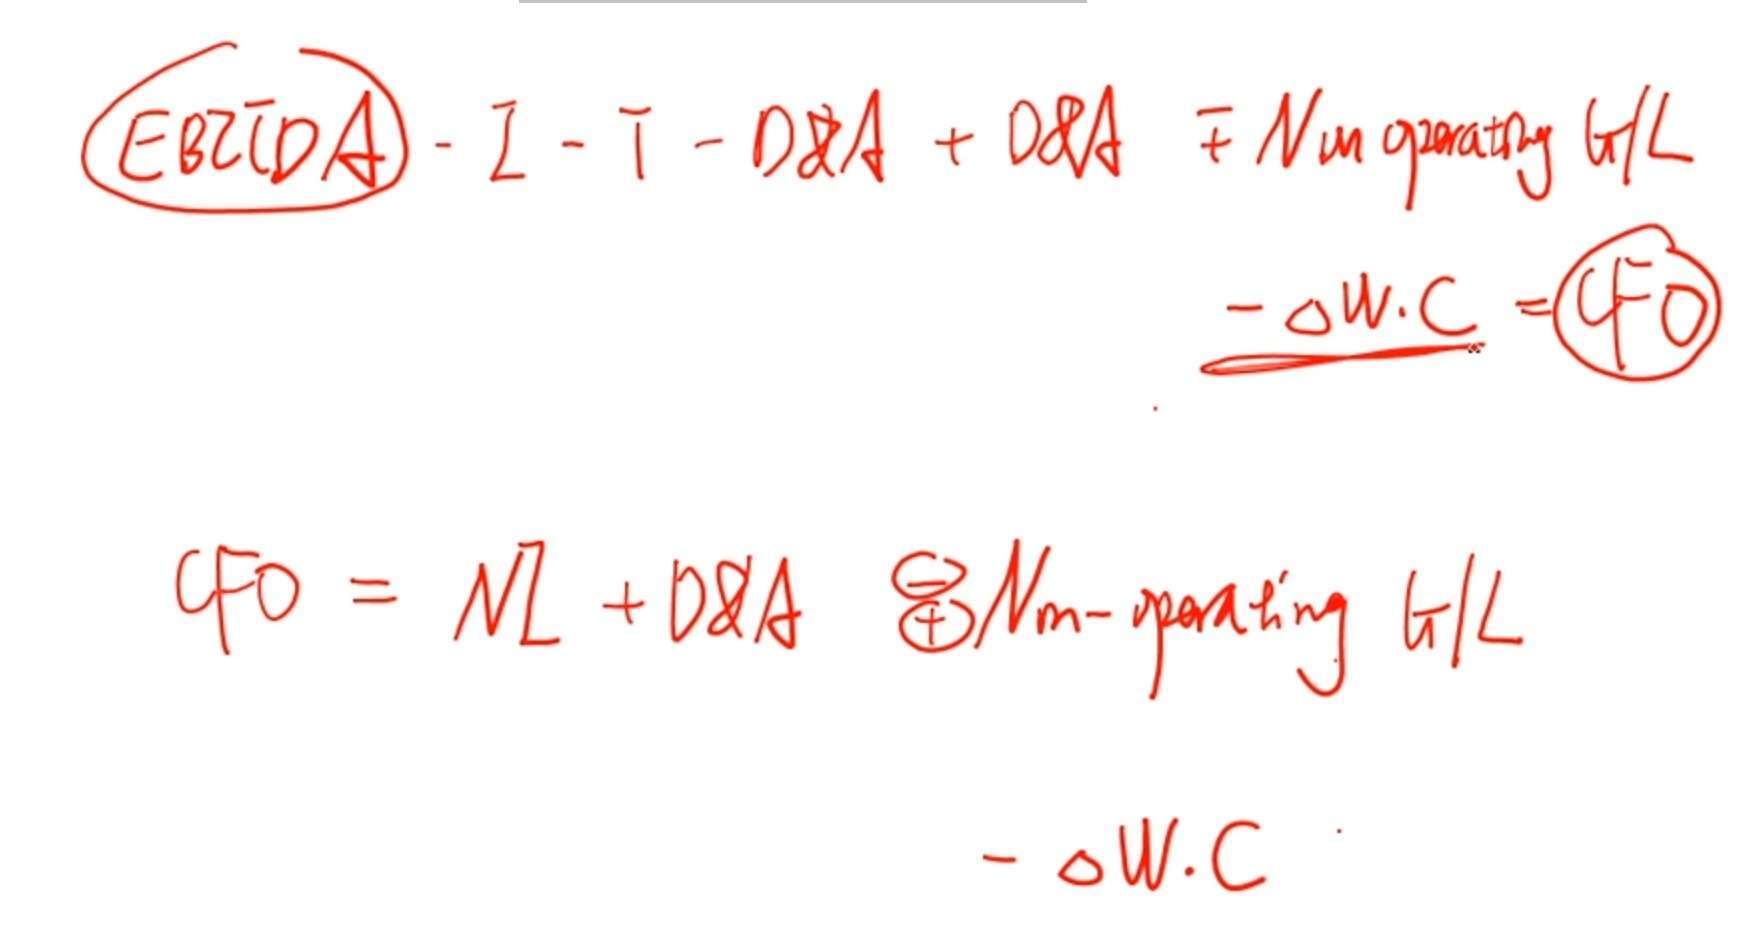 EBITDA - I - T - D&A + D&A ∓ Non operating G/L
- △W.C = CFO
CFO = NI + D&A ⊖⊕ Non-operating G/L
- △W.C